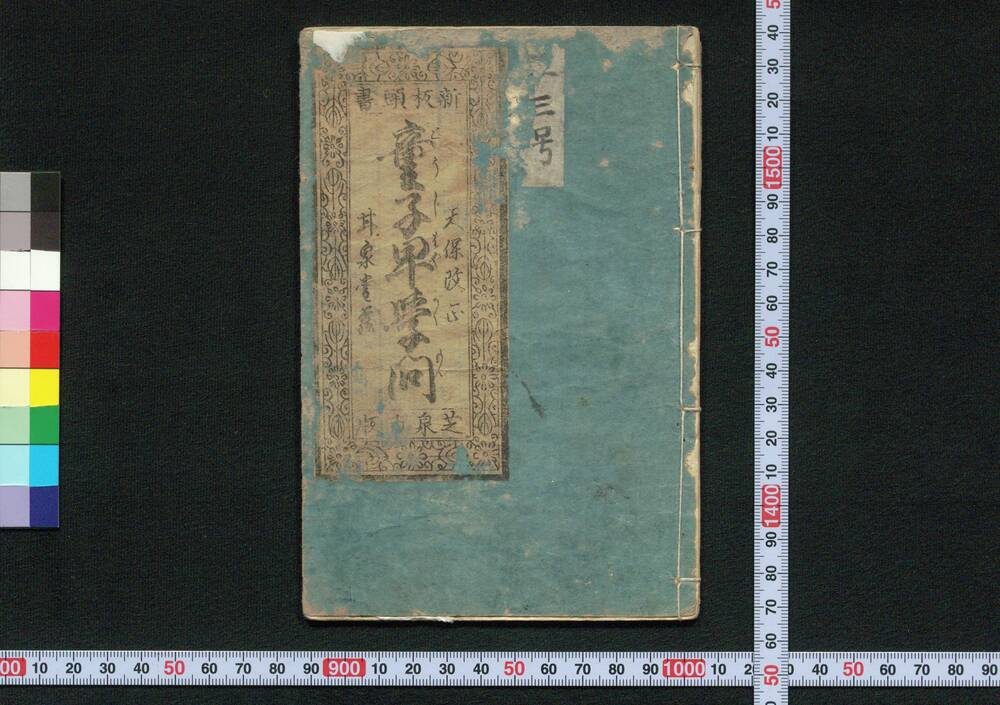 三号
新板頭書
天保改正
童子早学問
どうじはやがくもん
甘泉堂蔵
芝泉
10 20 30 40 50 60 70 80 90 900 10 20 30 40 50 60 70 80 90 1000 10 2
40 50 60 70 80 90
40 30 20 10 1500 90 80 70 60 50 40 30 20 10 1400 90 80 70 60 50